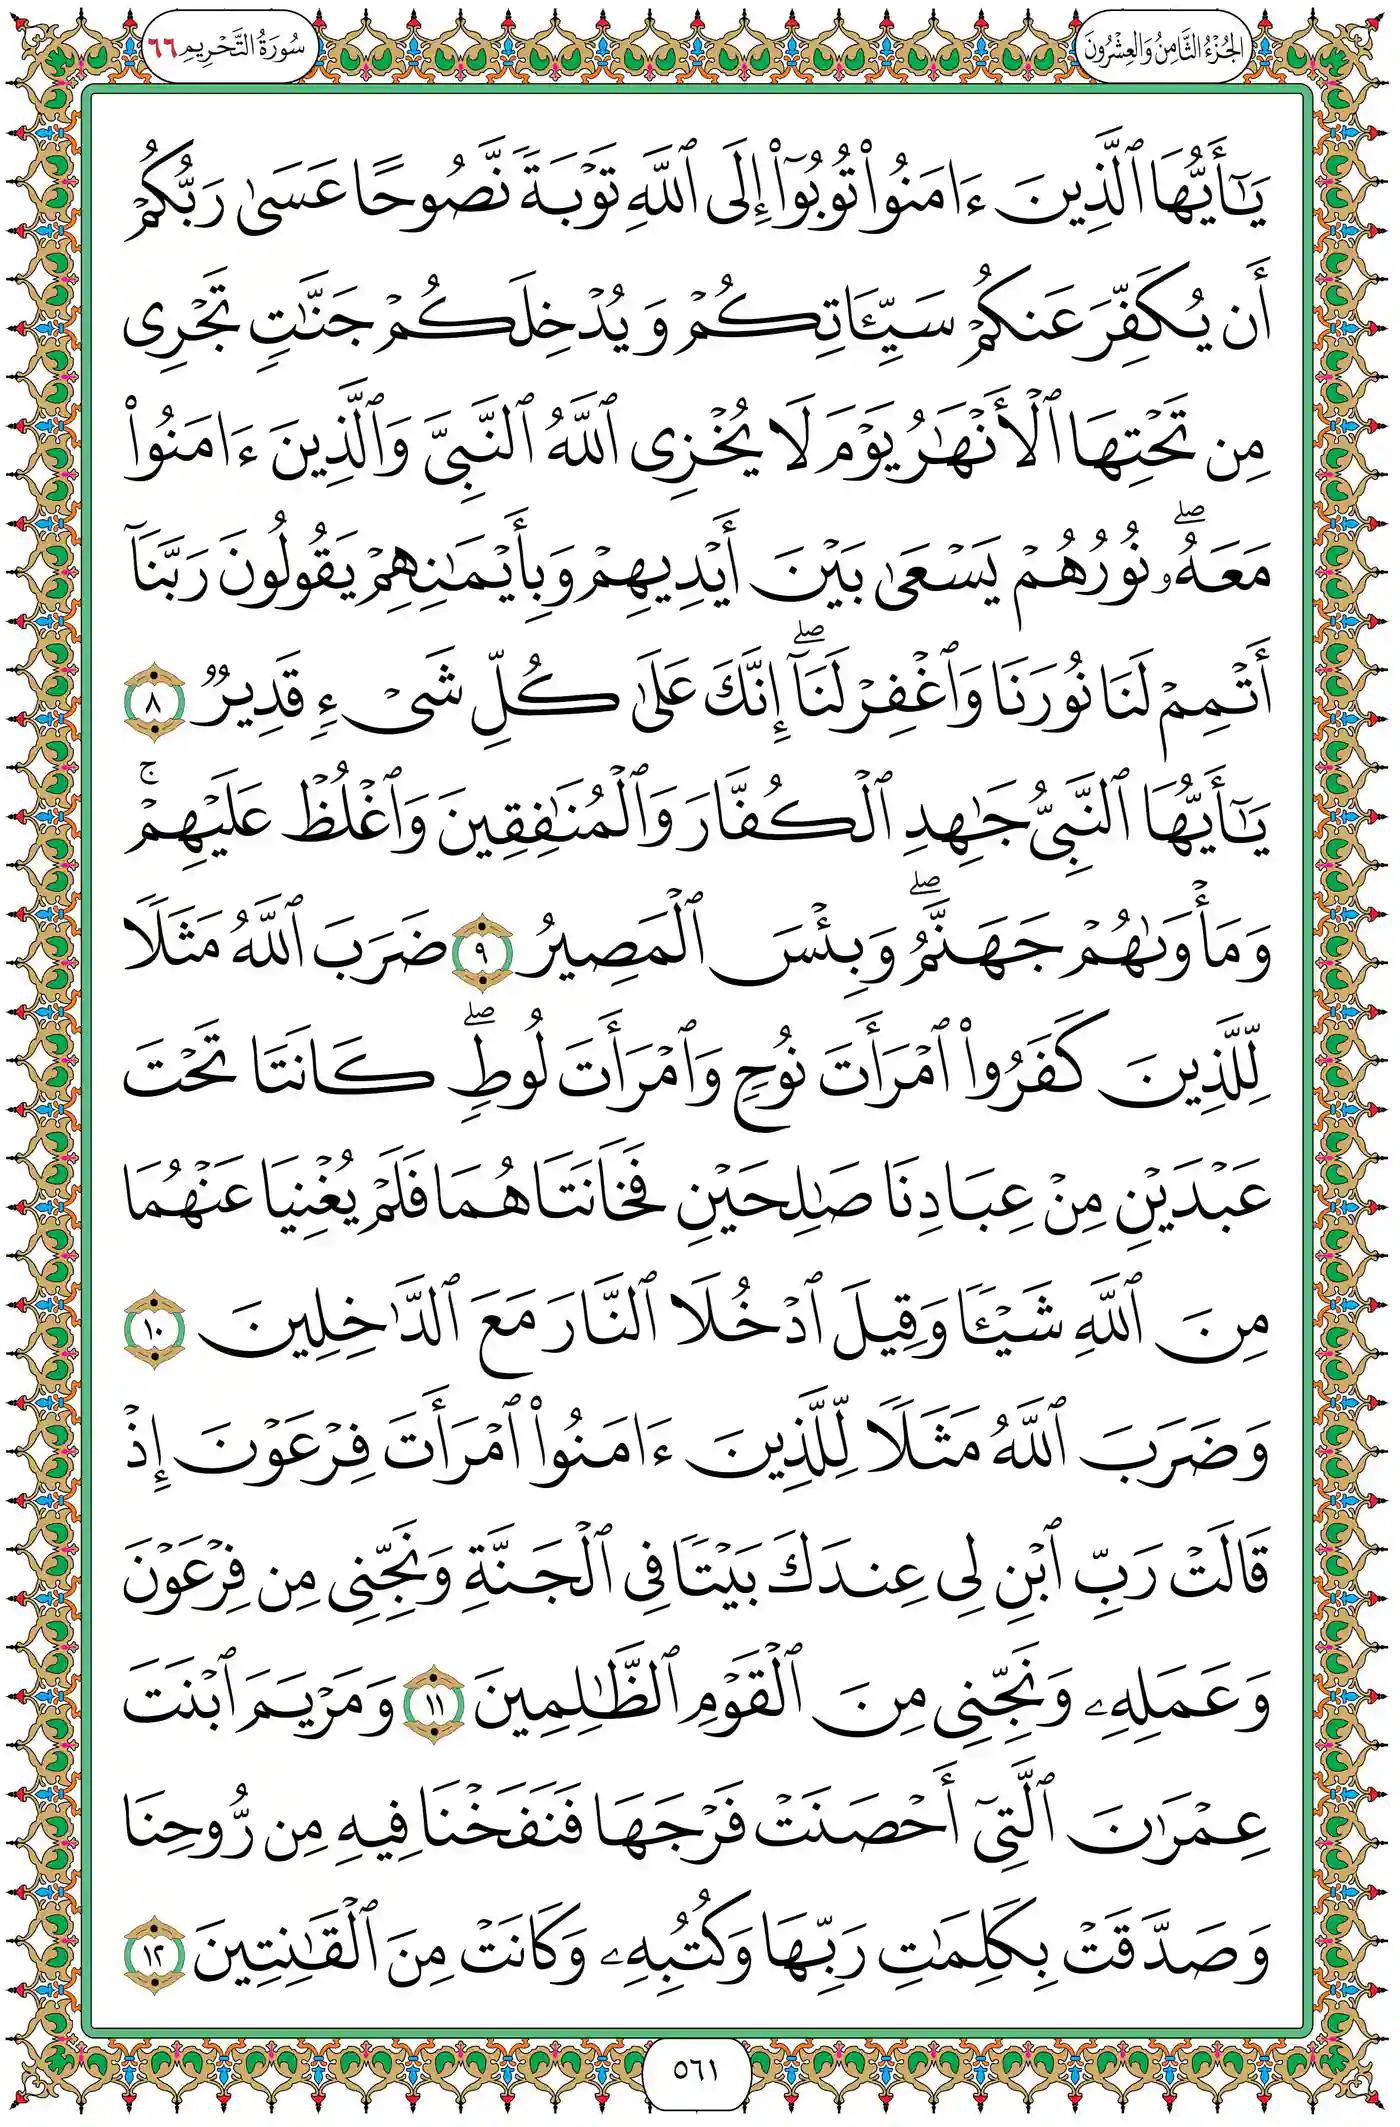 سُورَةُ التَّحْرِيمِ ٦٦
الجُزْءُ الثَّامِنُ وَالعِشْرُونَ
يَـٰٓأَيُّهَا ٱلَّذِينَ ءَامَنُوا۟ تُوبُوٓا۟ إِلَى ٱللَّهِ تَوْبَةً نَّصُوحًا عَسَىٰ رَبُّكُمْ
أَن يُكَفِّرَ عَنكُمْ سَيِّـَٔاتِكُمْ وَيُدْخِلَكُمْ جَنَّـٰتٍ تَجْرِى
مِن تَحْتِهَا ٱلْأَنْهَـٰرُ يَوْمَ لَا يُخْزِى ٱللَّهُ ٱلنَّبِىَّ وَٱلَّذِينَ ءَامَنُوا۟
مَعَهُۥ ۖ نُورُهُمْ يَسْعَىٰ بَيْنَ أَيْدِيهِمْ وَبِأَيْمَـٰنِهِمْ يَقُولُونَ رَبَّنَآ
أَتْمِمْ لَنَا نُورَنَا وَٱغْفِرْ لَنَآ ۖ إِنَّكَ عَلَىٰ كُلِّ شَىْءٍ قَدِيرٌ ٨
يَـٰٓأَيُّهَا ٱلنَّبِىُّ جَـٰهِدِ ٱلْكُفَّارَ وَٱلْمُنَـٰفِقِينَ وَٱغْلُظْ عَلَيْهِمْ ۚ
وَمَأْوَىٰهُمْ جَهَنَّمُ ۖ وَبِئْسَ ٱلْمَصِيرُ ٩ ضَرَبَ ٱللَّهُ مَثَلًا
لِّلَّذِينَ كَفَرُوا۟ ٱمْرَأَتَ نُوحٍ وَٱمْرَأَتَ لُوطٍ ۖ كَانَتَا تَحْتَ
عَبْدَيْنِ مِنْ عِبَادِنَا صَـٰلِحَيْنِ فَخَانَتَاهُمَا فَلَمْ يُغْنِيَا عَنْهُمَا
مِنَ ٱللَّهِ شَيْـًٔا وَقِيلَ ٱدْخُلَا ٱلنَّارَ مَعَ ٱلدَّٰخِلِينَ ١٠
وَضَرَبَ ٱللَّهُ مَثَلًا لِّلَّذِينَ ءَامَنُوا۟ ٱمْرَأَتَ فِرْعَوْنَ إِذْ
قَالَتْ رَبِّ ٱبْنِ لِى عِندَكَ بَيْتًا فِى ٱلْجَنَّةِ وَنَجِّنِى مِن فِرْعَوْنَ
وَعَمَلِهِۦ وَنَجِّنِى مِنَ ٱلْقَوْمِ ٱلظَّـٰلِمِينَ ١١ وَمَرْيَمَ ٱبْنَتَ
عِمْرَٰنَ ٱلَّتِىٓ أَحْصَنَتْ فَرْجَهَا فَنَفَخْنَا فِيهِ مِن رُّوحِنَا
وَصَدَّقَتْ بِكَلِمَـٰتِ رَبِّهَا وَكُتُبِهِۦ وَكَانَتْ مِنَ ٱلْقَـٰنِتِينَ ١٢
٥٦١